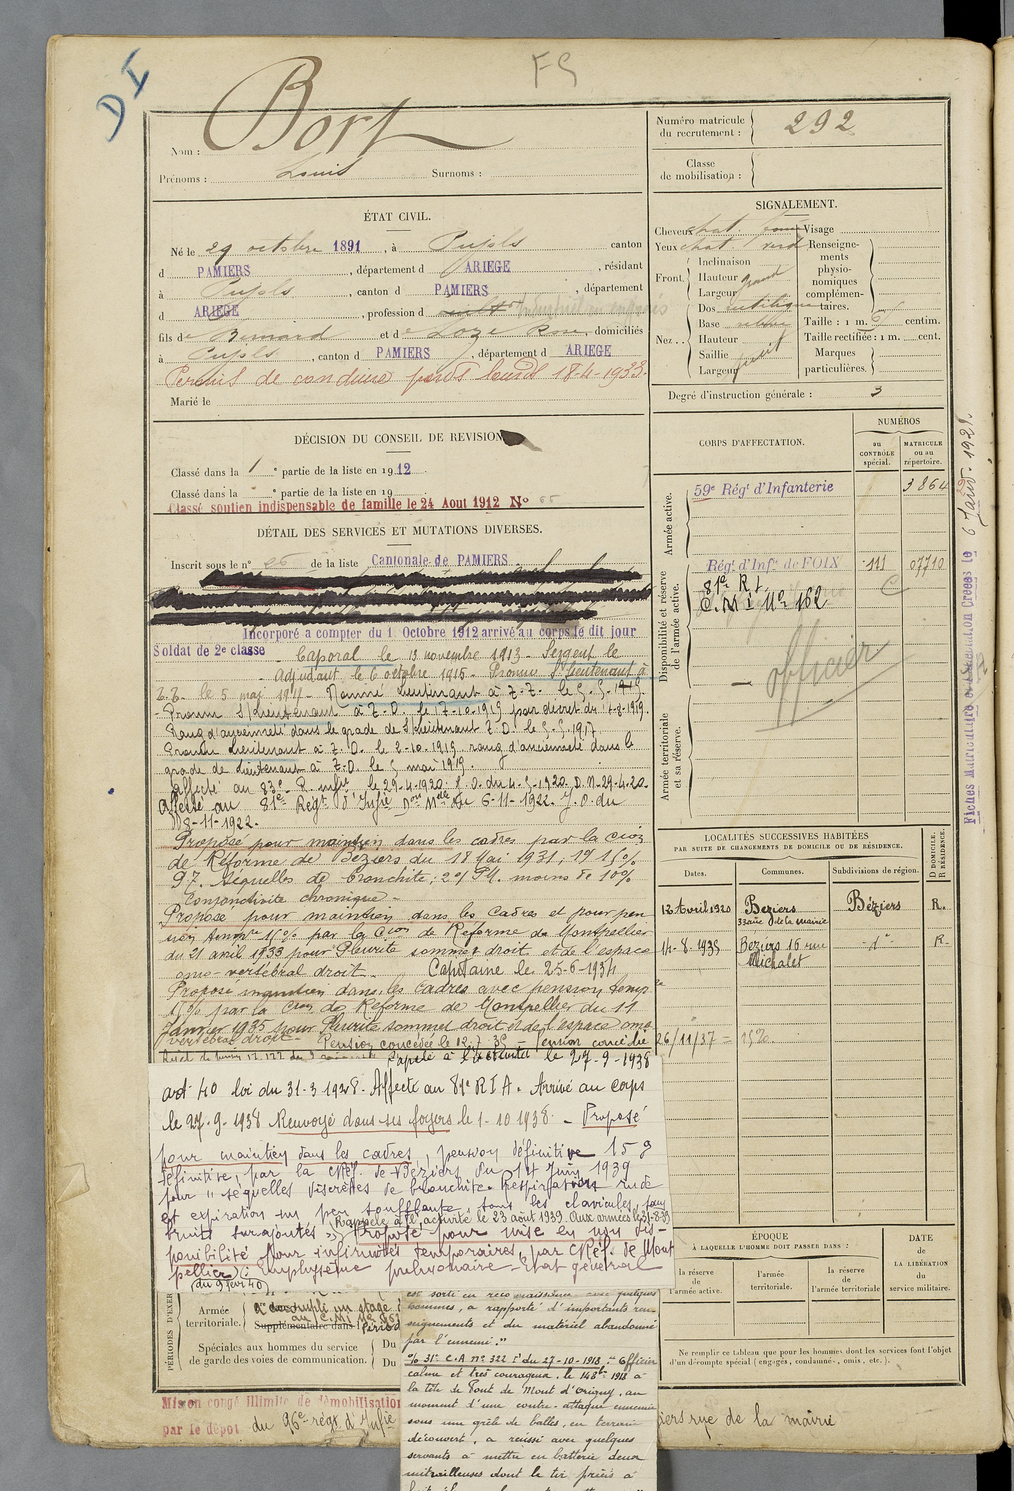 D I
FS
Nom : Bort
Prénoms : Louis Surnoms :
Numéro matricule du recrutement : 292
Classe de mobilisation :
ÉTAT CIVIL.
Né le 29 octobre 1891, à Pujols canton
d PAMIERS, département d ARIEGE, résidant
à Pujols, canton d PAMIERS, département
d ARIEGE, profession d
fils de Bernard et de Loze domiciliés
à Pujols, canton d PAMIERS, département d ARIEGE
Permis de conduire poids lourds 18-4-1933.
Marié le
SIGNALEMENT.
Cheveux chat. foncé Visage
Yeux chat. verd Renseigne-
ments
physio-
nomiques
complémen-
taires.
Front. Inclinaison
Hauteur grand
Largeur
Nez .. Dos rectiligne
Base
Hauteur
Saillie petit
Largeur
Taille : 1 m. 6 centim.
Taille rectifiée : 1 m. cent.
Marques
particulières.
Degré d'instruction générale : 3
DÉCISION DU CONSEIL DE REVISION
Classé dans la 1e partie de la liste en 1912.
Classé dans la " partie de la liste en 19
Classé soutien indispensable de famille le 24 Aout 1912 No 65
DÉTAIL DES SERVICES ET MUTATIONS DIVERSES.
Inscrit sous le n° 26 de la liste Cantonale de PAMIERS
Incorporé a compter du 1 Octobre 1912 arrivé au corps le dit jour
Soldat de 2e classe Caporal le 13 novembre 1913 - Sergent le
Adjudant, le 6 octobre 1915 - Promu S/Lieutenant à
T.T. le 5 mai 1917 - Nommé Lieutenant à T.T. le 5-5-1919.
Promu S/Lieutenant à T.D. le 17-10-1919 par décret du
Rang d'ancienneté dans le grade de S/Lieutenant T.D. le 5-5-1917
Promu Lieutenant à T.D. le 2-10-1919 rang d'ancienneté dans le
grade de Lieutenant à T.D. le 5 mai 1919.
Affecté au 83e R. infie le 29-4-1920. J.O. du 4-5-1920 D.M. 29-4-20
Affecté au 81e Régt d'Infie Don Mlle du 6-11-1922. J.O. du
8-11-1922.
Proposé pour maintien dans les cadres par la Cion
de Réforme de Béziers du 18 Mai 1931, 1° 15%
P.7. séquelles de bronchite; 2° moins de 10%
conjonctivite chronique -
Proposé pour maintien dans les cadres et pour pen
sion temp 15% par la Cion de Réforme de Montpellier
du 21 avril 1933 pour Pleurite sommet droit et de l'espace
omo-vertébral droit. Capitaine le 25-6-1934
Proposé maintien dans les cadres avec pension temp
15% par la Cion de Réforme de Montpellier du 11
Janvier 1935 pour Pleurite sommet droit et de l'espace omo
vertébral droit - Pension concédée le 12.7.35 - Pension concédée
Rappelé à l'activité le 27-9-1938
art 40 loi du 31-3-1928. Affecté au 81e RIA. Arrivé au corps
le 27-9-1938 Renvoyé dans ses foyers le 1-10 1938. - Proposé
pour maintien dans les cadres, pension définitive 15 %
définitive, par la CRéf. de Béziers du 14 Juin 1939
pour " séquelles discrètes de bronchite. Respiration rude
et expiration un peu soufflante sous les clavicules, sans
bruits surajoutés " Rappelé à l'activité le 23 août 1939. Aux armées le 31-8-39
Proposé pour mise en non dis-
ponibilité pour infirmités temporaires, par CRéf. de Mont
pellier (du 9 fevr 40) : Emphysème pulmonaire - Etat général
CORPS D'AFFECTATION.
NUMÉROS
au CONTRÔLE spécial.
MATRICULE ou au répertoire.
Armée active.
59e Régt d'Infanterie 3864
Disponibilité et réserve de l'armée active.
Régt d'Infie de FOIX 111 07710
81e R.I. C
C.M.I No 162
officier
Armée territoriale et sa réserve.
Fiches Matriculaire et d'Affectation Créées le 6 Janv. 1921.
LOCALITÉS SUCCESSIVES HABITÉES
PAR SUITE DE CHANGEMENTS DE DOMICILE OU DE RÉSIDENCE.
Dates. Communes. Subdivisions de région. D DOMICILE. R RÉSIDENCE.
12 Avril 1920 Beziers 33 rue de la mairie Béziers R.
14-8-1935 Beziers 16 rue Michalet -do- R-
26/11/37 = 15%
ÉPOQUE
À LAQUELLE L'HOMME DOIT PASSER DANS :
la réserve de l'armée active.
l'armée territoriale.
la réserve de l'armée territoriale
DATE de la LIBÉRATION du service militaire.
Ne remplir ce tableau que pour les hommes dont les services font l'objet
d'un décompte spécial (engagés, condamnés, omis, etc.).
PÉRIODES D'EXER
Armée territoriale. A accompli un stage
au C.M. No
Supplémentaire dans Périod
Spéciaux aux hommes du service
de garde des voies de communication. Du
Du
est sorti en reconnaissance avec quelques
hommes, a rapporté d'importants ren
seignements et du matériel abandonné
par l'ennemi."
O/ 31e C.A n° 322 du 27-10-1918 : " Officier
calme et très courageux, le 14 8bre 1918 à
la tête de Pont de Mont d'Origny, au
moment d'une contre-attaque ennemie
sous une grèle de balles, en terrain
découvert, a réussi avec quelques
servants à mettre en batterie deux
mitrailleuses dont le tir précis a
Mis en congé illimité de démobilisation
par le dépot du 96e régt d'Infie
iers rue de la mairie